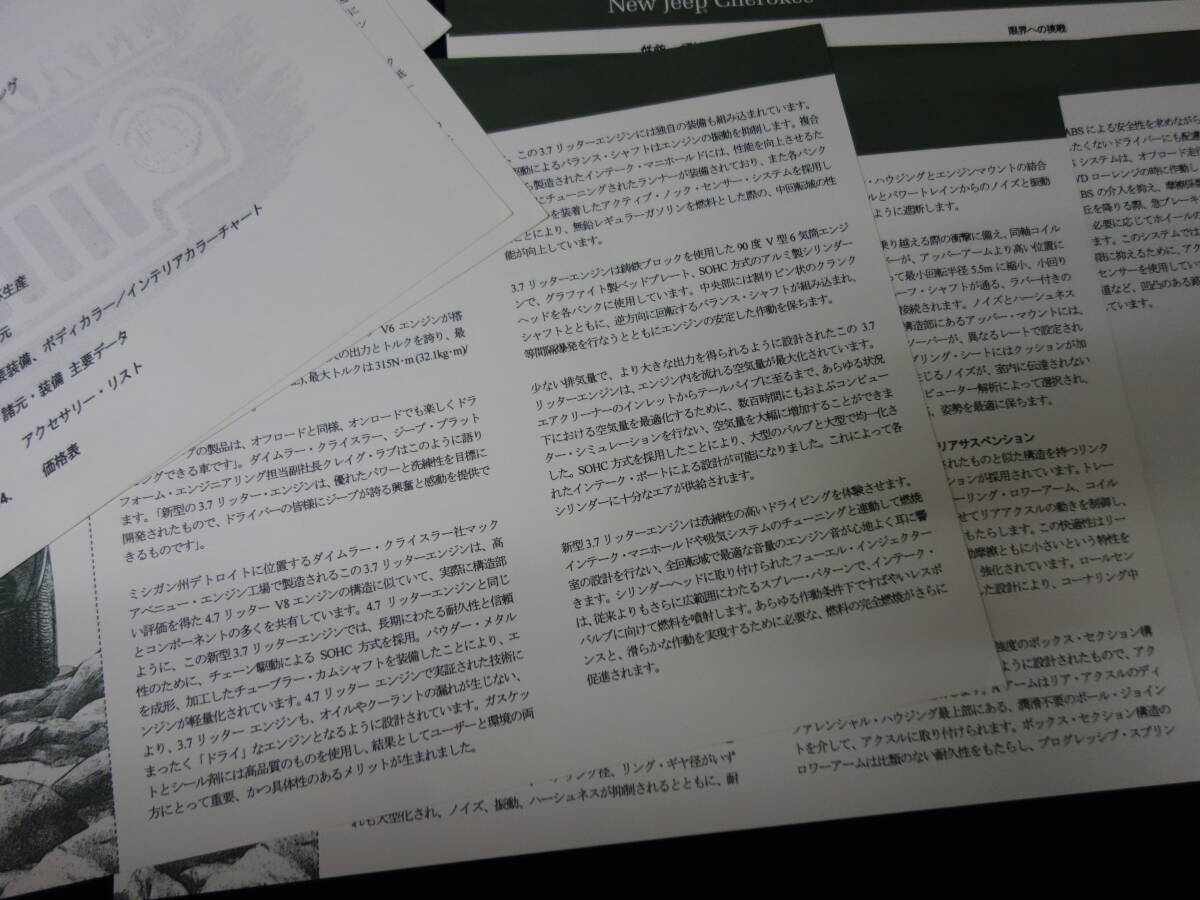 New Jeep Cherokee
限界への挑戦
生産
元
装備、ボディカラー/インテリアカラーチャート
諸元・装備 主要データ
アクセサリー・リスト
4. 価格表
V6 エンジンが搭
の出力とトルクを誇り、最
最大トルクは315N･m (32.1kg･m)/
の製品は、オフロードと同様、オンロードでも楽しくドラ
できる車です」。ダイムラー・クライスラー、ジープ・プラット
フォーム・エンジニアリング担当副社長クレイグ・ラブはこのように語り
ます。「新型の3.7 リッター・エンジンは、優れたパワーと洗練性を目標に
開発されたもので、ドライバーの皆様にジープが誇る興奮と感動を提供で
きるものです」。
ミシガン州デトロイトに位置するダイムラー・クライスラー社マック
アベニュー・エンジン工場で製造されるこの3.7 リッターエンジンは、高
い評価を得た4.7 リッター V8 エンジンの構造に似ていて、実際に構造部
とコンポーネントの多くを共有しています。4.7 リッターエンジンと同じ
ように、この新型3.7 リッターエンジンでは、長期にわたる耐久性と信頼
性のために、チェーン駆動による SOHC 方式を採用。パウダー・メタル
を成形、加工したチューブラー・カムシャフトを装備したことにより、エ
ンジンが軽量化されています。4.7 リッター エンジンで実証された技術に
より、3.7 リッター エンジンも、オイルやクーラントの漏れが生じない、
まったく「ドライ」なエンジンとなるように設計されています。ガスケッ
トとシール剤には高品質のものを使用し、結果としてユーザーと環境の両
方にとって重要、かつ具体性のあるメリットが生まれました。
、この3.7 リッターエンジンには独自の装備も組み込まれています。
駆動によるバランス・シャフトはエンジンの振動を抑制します。複合
ら製造されたインテーク・マニホールドには、性能を向上させるた
にチューニングされたランナーが装備されており、また各バンク
を装着したアクティブ・ノック・センサー・システムを採用し
ことにより、無鉛レギュラーガソリンを燃料とした際の、中回転域の性
能が向上しています。
3.7 リッターエンジンは鋳鉄ブロックを使用した 90 度 V 型 6 気筒エンジ
ンで、グラファイト製ベッドプレート、SOHC 方式のアルミ製シリンダー
ヘッドを各バンクに使用しています。中央部には割りピン状のクランク
シャフトとともに、逆方向に回転するバランス・シャフトが組み込まれ、
等間隔爆発を行なうとともにエンジンの安定した作動を保ちます。
少ない排気量で、より大きな出力を得られるように設計されたこの 3.7
リッターエンジンは、エンジン内を流れる空気量が最大化されています。
エアクリーナーのインレットからテールパイプに至るまで、あらゆる状況
下における空気量を最適化するために、数百時間にもおよぶコンピュー
ター・シミュレーションを行ない、空気量を大幅に増加することができま
した。SOHC 方式を採用したことにより、大型のバルブと大型で均一化さ
れたインテーク・ポートによる設計が可能になりました。これによって各
シリンダーに十分なエアが供給されます。
新型3.7 リッターエンジンは洗練性の高いドライビングを体験させます。
インテーク・マニホールドや吸気システムのチューニングと連動して燃焼
室の設計を行ない、全回転域で最適な音量のエンジン音が心地よく耳に響
きます。シリンダーヘッドに取り付けられたフューエル・インジェクター
は、従来よりもさらに広範囲にわたるスプレー・パターンで、インテーク・
バルブに向けて燃料を噴射します。あらゆる作動条件下ですばやいレスポ
ンスと、滑らかな作動を実現するために必要な、燃料の完全燃焼がさらに
促進されます。
径、リング・ギヤ径がいず
れも大型化され、ノイズ、振動、ハーシュネスが抑制されるとともに、耐
・ハウジングとエンジンマウントの結合
ルとパワートレインからのノイズと振動
ように遮断します。
乗り越える際の衝撃に備え、同軸コイル
が、アッパーアームより高い位置に
って最小回転半径 5.5m に縮小、小回り
ーフ・シャフトが通る、ラバー付きの
接続されます。ノイズとハーシュネス
構造部にあるアッパー・マウントには、
ソーバーが、異なるレートで設定され
プリング・シートにはクッションが加
生じるノイズが、室内に伝達されない
ピューター解析によって選択され、
、姿勢を最適に保ちます。
リアサスペンション
されたものと似た構造を持つリンク
ションが採用されています。トレー
ーリング・ロワーアーム、コイル
せてリアアクスルの動きを制御し、
もたらします。この快適性はリー
摩擦ともに小さいという特性を
強化されています。ロールセン
た設計により、コーナリング中
強度のボックス・セクション構
ように設計されたもので、アク
アームはリア・アクスルのディ
ファレンシャル・ハウジング最上部にある、潤滑不要のボール・ジョイン
トを介して、アクスルに取り付けられます。ボックス・セクション構造の
ロワーアームは比類のない耐久性をもたらし、プログレッシブ・スプリン
ABS による安全性を求めながら
たくないドライバーにも配慮
システムは、オフロード走行
WD ローレンジの時に作動し
BS の介入を抑え、摩擦係数
丘を降りる際、急ブレーキ
必要に応じてホイールが
ます。このシステムでは
限に抑えるために、アク
センサーを使用してい
道など、凹凸のある路
ています。